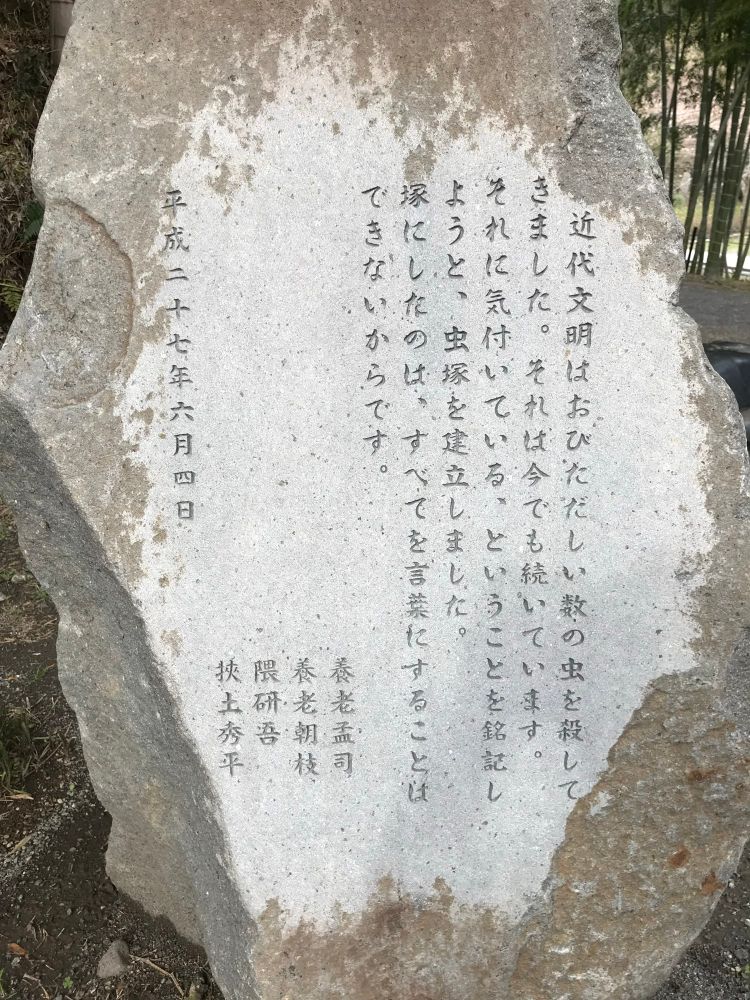 近代文明はおびただしい数の虫を殺して
きました。それは今でも続いています。
それに気付いている、ということを銘記し
ようと、虫塚を建立しました。
塚にしたのは、すべてを言葉にすることは
できないからです。
養老孟司
養老朝枝
隈研吾
挾土秀平
平成二十七年六月四日